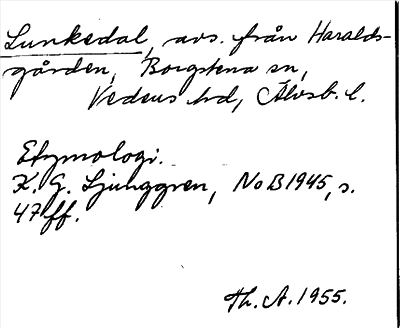 Lunkedal, avs. från Haralds-
gården, Borgstena sn,
Vedens hd, Älvsb. l.
Etymologi.
K. G. Ljunggren, NoB 1945, s.
47 ff.
Th. A. 1955.